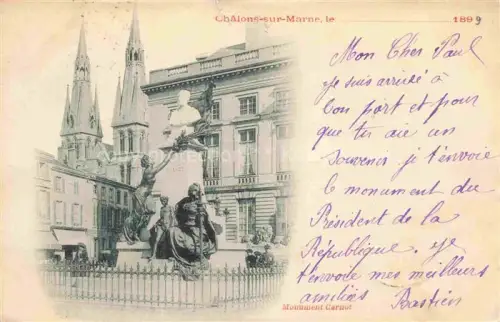 Châlons-sur-Marne, le 1899
Mon Cher Paul
je suis arrivé à
bon port et pour
que tu aie un
souvenir je t'envoie
le monument du
Président de la
République. je
t'envoie mes meilleurs
amitiés Bastien
Monument Carnot